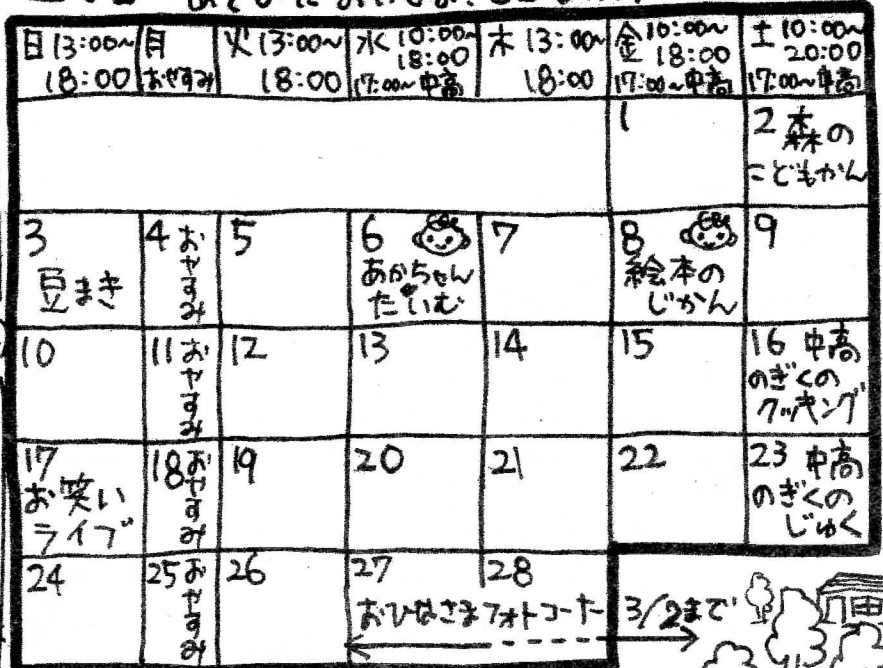 日 13:00~
18:00
月
おやすみ
火 13:00~
18:00
水 10:00~
18:00
17:00~中高
木 13:00~
18:00
金 10:00~
18:00
17:00~中高
土 10:00~
20:00
17:00~中高
1
2 森の
こどもかん
3
豆まき
4 おやすみ
5
6
あかちゃん
たいむ
7
8
絵本の
じかん
9
10
11 おやすみ
12
13
14
15
16 中高
のぎくの
クッキング
17
お笑い
ライブ
18 おやすみ
19
20
21
22
23 中高
のぎくの
じゅく
24
25 おやすみ
26
27
28
おひなさまフォトコーナー 3/2まで